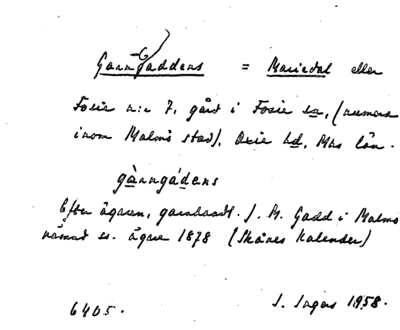 Garn-Gaddens = Mariedal eller
Fosie n:r 7, gård i Fosie sn, (numera
inom Malmö stad), Oxie hd, Mhs län.
gànngádens
Efter ägaren, garnhandl. J. M. Gadd i Malmö
nämnd ss. ägare 1878 (Skånes Kalender)
6405. I. Ingers 1958.